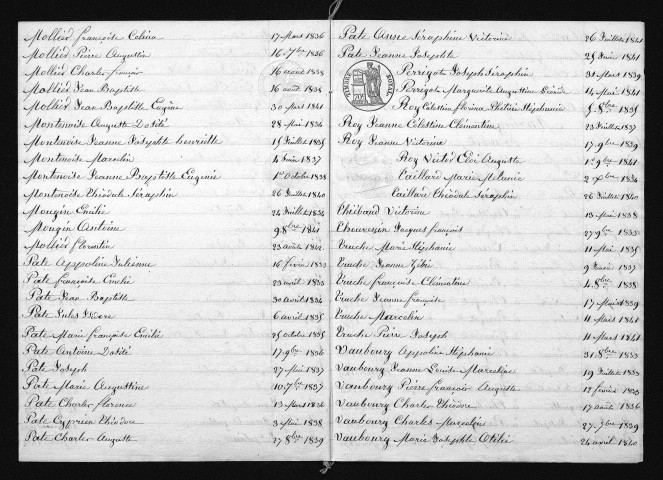 Molliéd françoise Celina 17 Mars 1836
Molliéd Pierre Augustin 16 7bre 1836
Molliéd Charles françois 16 aout 1838
Molliéd Jean Baptiste 16 aout 1838
Molliéd Jean Baptiste Eugène 30 Mars 1841
Montenoise Auguste 28 Mai 1834
Montenoise Jeanne Josephte henriette 15 Juillet 1835
Montenoise Marcelin 4 Juin 1837
Montenoise Jeanne Baptiste Eugénie 1er Octobre 1838
Montenoise Théodule Séraphin 26 Juillet 1840
Mougin Emilie 24 Juillet 1834
Mougin Antoine 9 8bre 1841
Molliéd florentin 23 août 1842
Pate Appoline Julienne 16 fevrier 1833
Pate françoise Emelie 23 avril 1833
Pate Jean Baptiste 30 Avril 1834
Pate Jules 6 avril 1835
Pate Marie françoise Emilie 25 Octobre 1835
Pate Antoine 17 9bre 1836
Pate Joseph 27 Mai 1837
Pate Marie Augustine 10 7bre 1837
Pate Charles florence 13 Mars 1838
Pate Cyprien Théodore 3 Mai 1838
Pate Charles Auguste 27 8bre 1839
Pate Anne Séraphine Victorine 26 Juillet 1841
Pate Jeanne Josephte 25 Juin 1841
Perrigot Joseph Séraphin 31 Mars 1839
Perrigot Marguerite Augustine 14 Mai 1841
TIMBRE ROYAL
Roy Célestine florina Stéphanie 5 8bre 1835
Roy Jeanne Célestine Clémentine 23 Juillet 1837
Roy Jeanne Victorine 17 9bre 1839
Roy Victor Auguste 1er 9bre 1841
Taillard Marie Melanie 2 Xbre 1834
Taillard Théodule Séraphin 26 Juillet 1840
Thiébaud Victorine 13 Mai 1838
Thouvesin Jacques françois 27 9bre 1833
Truche Marie Stéphanie 11 Mai 1835
Truche Jeanne Zélie 9 1837
Truche françoise Clémentine 4 8bre 1838
Truche Jeanne françoise 17 Mai 1839
Truche Marcelin 11 Mars 1841
Truche Pierre Joseph 11 Mars 1841
Vaubourg Appoline Stéphanie 31 8bre 1833
Vaubourg Jeanne Louise Marceline 19 Juillet 1833
Vaubourg Pierre françois Auguste 12 fevrier 1835
Vaubourg Charles Théodore 17 Aout 1836
Vaubourg Charles Marcelin 27 7bre 1839
Vaubourg Marie Josephte Otilie 24 avril 1840